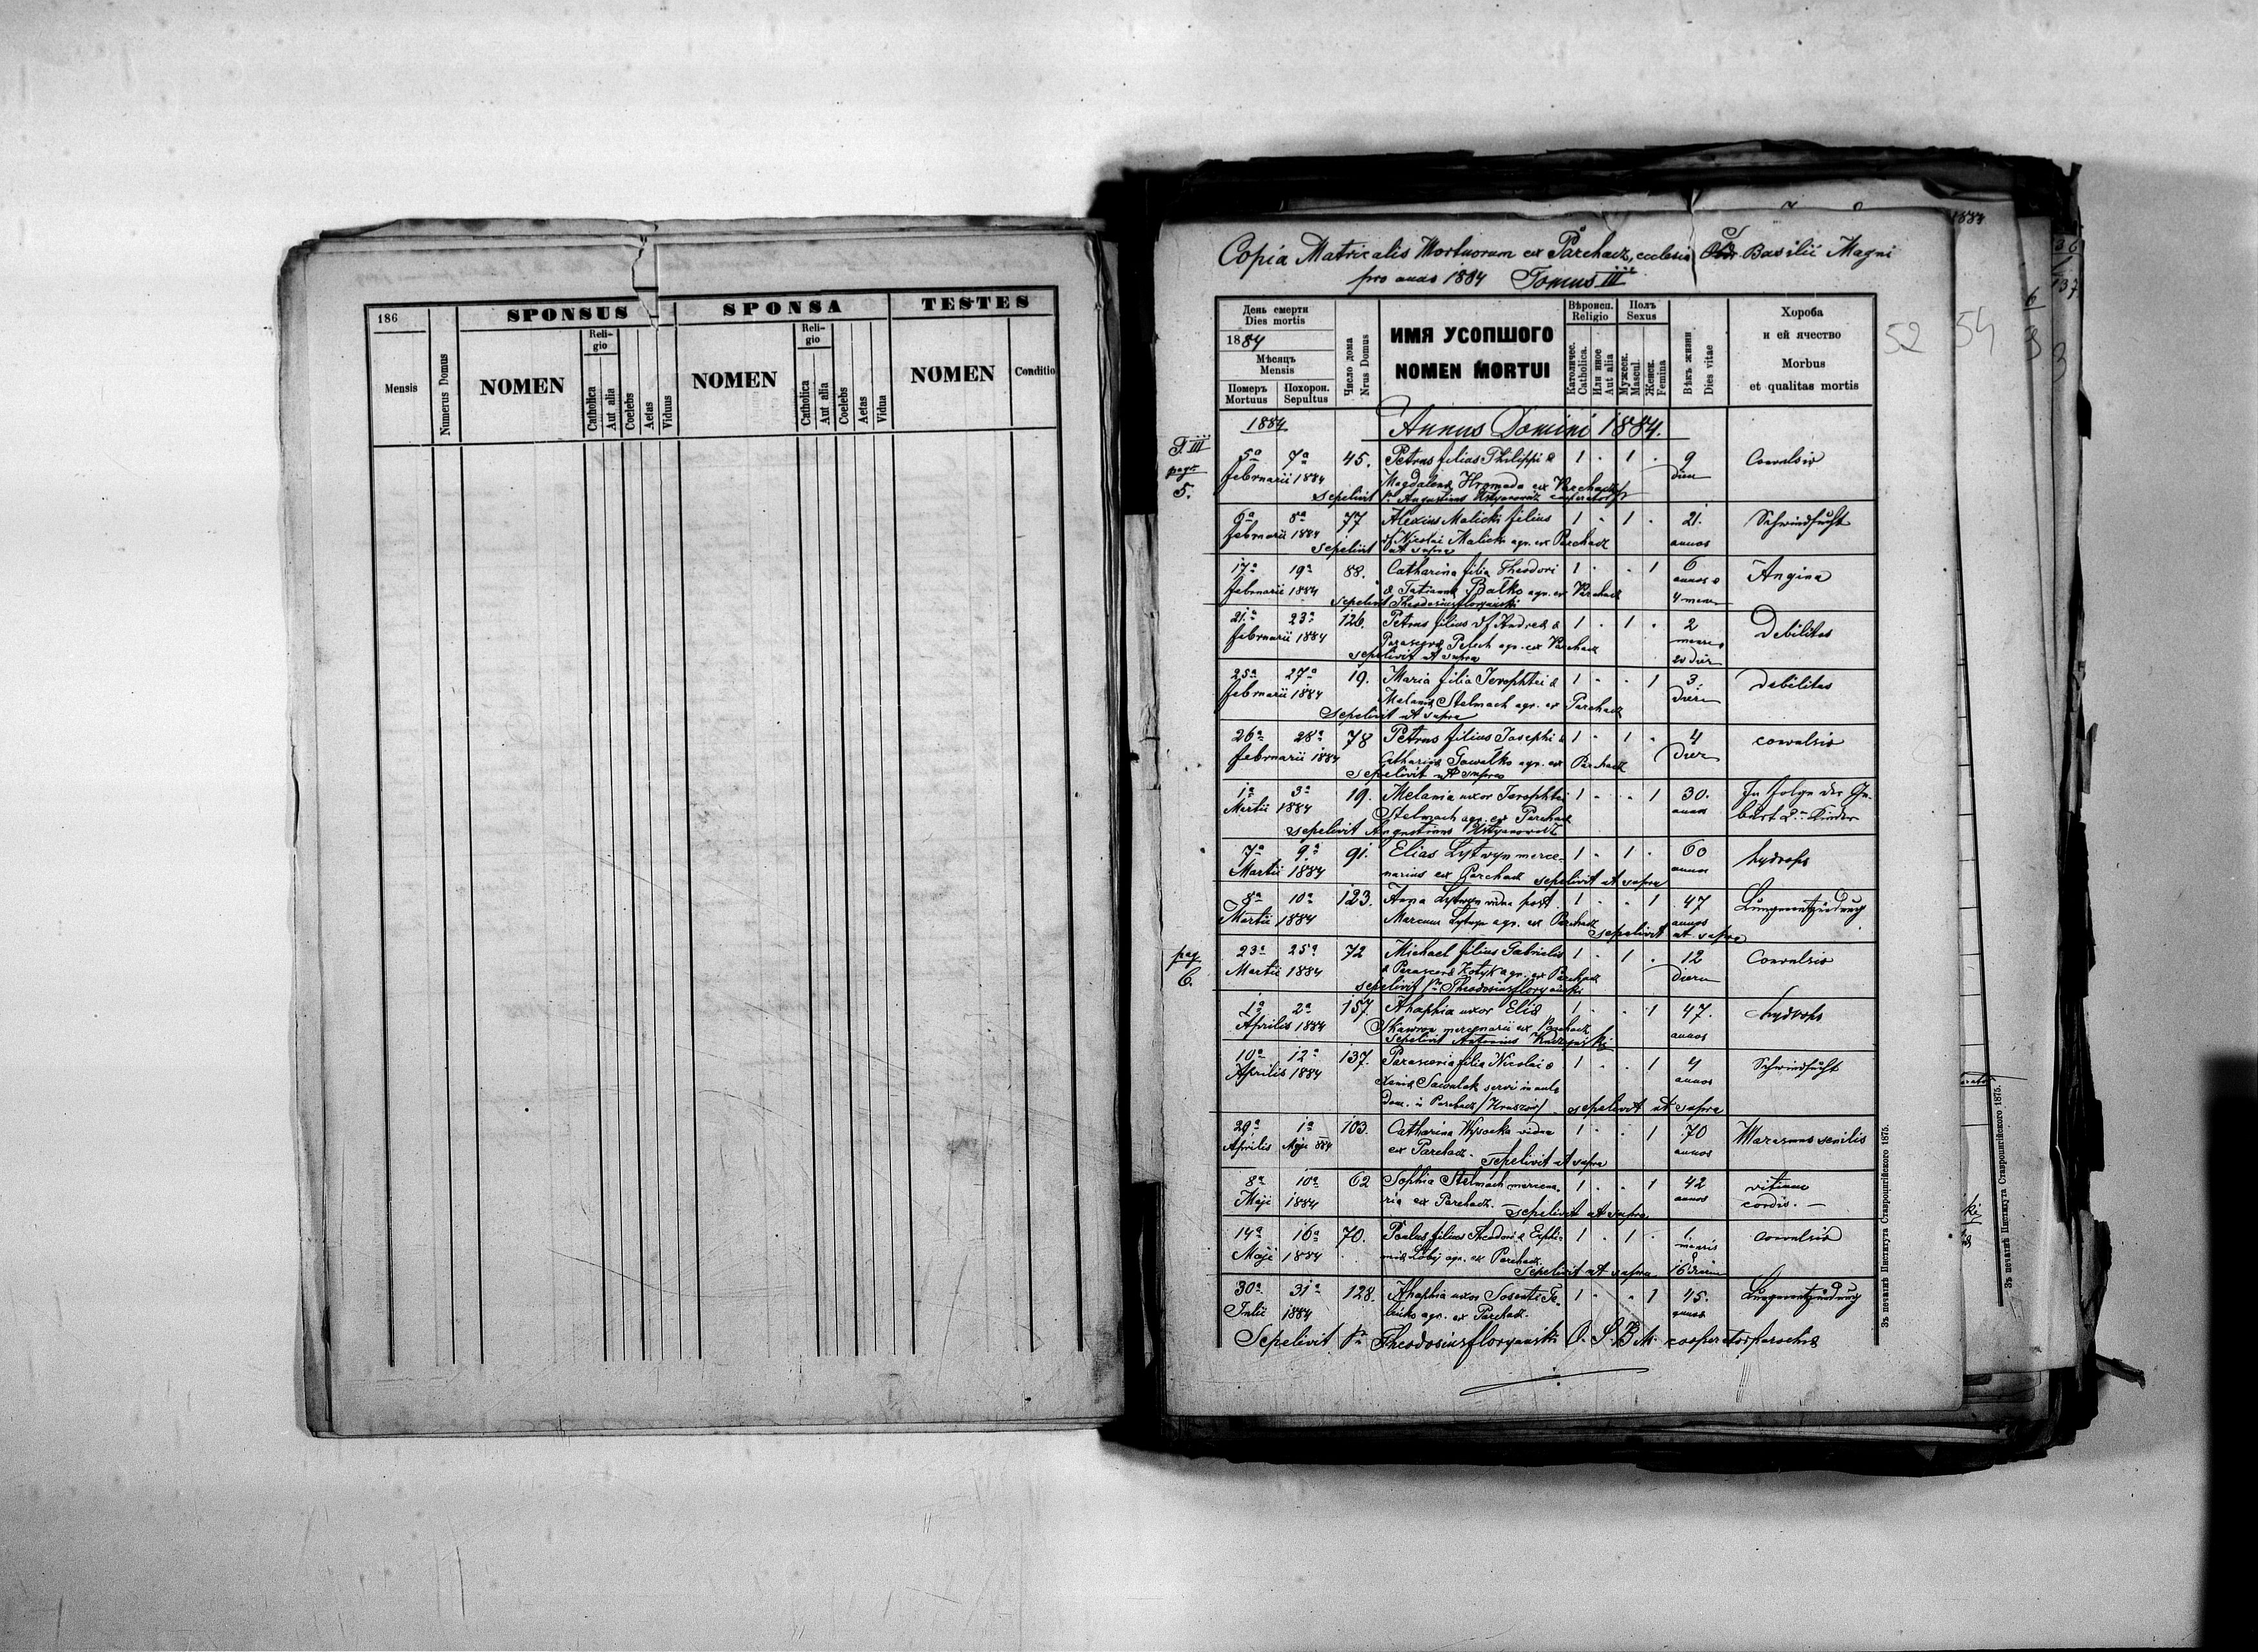 186
SPONSUS SPONSA TESTES
Mensis
Numerus Domus
NOMEN
Reli-
gio
Catholica
Aut alia
Coelebs
Aetas
Viduus
NOMEN
Reli-
gio
Catholica
Aut alia
Coelebs
Aetas
Vidua
NOMEN
Conditio
1884
Copia Matricalis Mortuorum ex Parchacz, ecclesia S. Basilii Magni
pro anno 1884 Tomus III
День смерти
Dies mortis
1884
Мѣсяць
Mensis
Померъ
Mortuus
Похорон.
Sepultus
Число дома
Nrus Domus
ИМЯ УСОПШОГО
NOMEN MORTUI
Вѣроисп.
Religio
Католичес.
Catholica.
Или иное
Aut alia
Полъ
Sexus
Мужеск.
Mascul.
Женск.
Femina
Вѣкъ жизни
Dies vitae
Хороба
и ей ячество
Morbus
et qualitas mortis
52 54
1884 Annus Domini 1884.
T. III
pag.
5.
5a 7a 45. Petrus filius Philippi & 1 . 1 . 9 Convulsio
februarii 1884 Magdalena Hromada ex Parchacz dieru
sepelivit Augustinus Ustyanowicz cooperator
6a 8a 77 Alexius Malicki filius 1 . 1 . 21. Schwindsucht
februarii 1884 Nicolai Malicki agr. ex Parchacz annos
sepelivit ut supra
17a 19a 88. Catharina filia Theodori 1 . . 1 6 Angina
februarii 1884 & Tatianna Bałko agr. ex Parchacz annos &
sepelivit Theodosius Floryanski 4 mens
21a 23a 126. Petrus filius Andrea & 1 . 1 . 2 Debilitas
februarii 1884 Parascева Pelech agr. ex Parchacz menses
sepelivit ut supra 20 dier
25a 27a 19. Maria filia Jerophtei & 1 . . 1 3. debilitas
februarii 1884 Melania Stelmach agr. ex Parchacz dieru
sepelivit ut supra
26a 28a 78 Petrus filius Josephi & 1 . 1 . 4 convulsio
februarii 1884 Catharina Gowałko agr. ex Parchacz dier
sepelivit ut supra
1a 3a 19. Melania uxor Jerophtei 1 . . 1 30. In Folge der Ge-
Martii 1884 Stelmach agr. ex Parchacz annos burt 2 Kinder
sepelivit Augustinus Ustyanowicz
7a 9a 91. Elias Lytwyn merce- 1 . 1 . 60 hydrops
Martii 1884 narius ex Parchacz sepelivit ut supra annos
8a 10a 123. Anna Lytwyn vidua post 1 . . 1 47 Lungenentzündung
Martii 1884 Marcum Lytwyn agr. ex Parchacz annos
sepelivit ut supra
pag
6.
23a 25a 72 Michael filius Gabrielis 1 . 1 . 12 Convulsio
Martii 1884 & Parascева Kotyk agr. ex Parchacz dieru
sepelivit Theodosius Floryanski
1a 2a 157. Ahaphia uxor Elia 1 . . 1 47. hydrops
Aprilis 1884 Skawron mercenarii ex Parchacz annos
Sepelivit Antonius
10a 12a 137. Parascevia filia Nicolai & 1 . . 1 4 Schwindsucht
Aprilis 1884 Xenia Sawulak servi in aula annos
Dom. in Parchacz sepelivit ut supra
29a 1a 103. Catharina Wysocka vidua 1 . . 1 70 Marasmus senilis
Aprilis Maji 884 ex Parchacz. sepelivit ut supra annos
8a 10a 62 Sophia Stelmach mercena- 1 . . 1 42 vitium
Maji 1884 ria ex Parchacz. sepelivit ut supra annos cordis.
14a 16a 70. Paulus filius Theodori & Euphi- 1 . 1 . 1 convulsio
Maji 1884 mia agr. ex Parchacz mensis
Sepelivit ut supra 16 dierum
30a 31a 128. Ahaphia uxor 1 . . 1 45. Lungenentzündung
Julii 1884 agr. ex Parchacz. annos
Sepelivit Theodosius Floryanski O. S. B. M. cooperator parochiæ
Зъ печатнѣ Института Ставропигійского 1875.
Зъ печатнѣ Института Ставропигійского 1875.